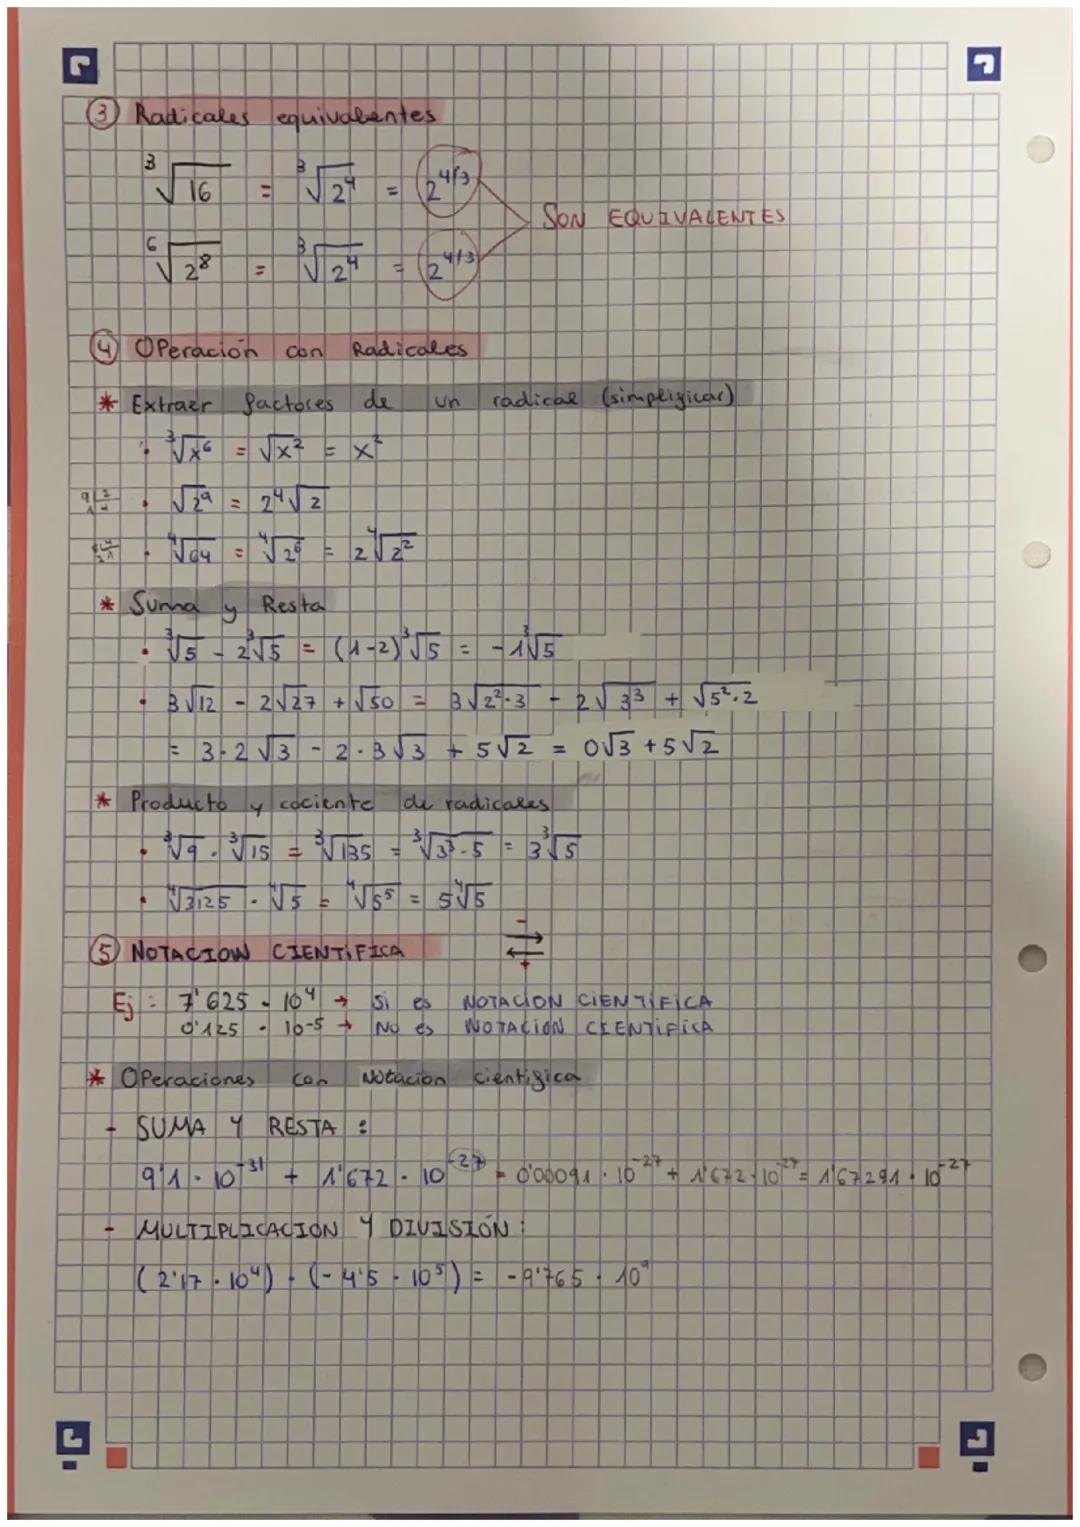 ③ Radicales equivalentes
∛16 = ∛2⁴ = 2^4/3
SON EQUIVALENTES
⁶√2⁸ = ∛2⁴ = 2^4/3
④ Operación con Radicales
* Extraer factores de un radical (simplificar)
· ∛x⁶ = √x² = x²
· √2⁹ = 2⁴√2
· ⁴√64 = ⁴√2⁶ = 2 ⁴√2²
* Suma y Resta
· ∛5 - 2∛5 = (1-2)∛5 = -1∛5
· 3√12 - 2√27 + √50 = 3√2²·3 - 2√3³ + √5²·2
= 3·2√3 - 2·3√3 + 5√2 = 0√3 + 5√2
* Producto y cociente de radicales
· ∛9 · ∛15 = ∛135 = ∛3³·5 = 3∛5
· ⁴√3125 · ⁴√5 = ⁴√5⁵ = 5⁴√5
⑤ NOTACION CIENTÍFICA
- ⇄ +
Ej: 7'625 · 10⁴ → Si es NOTACION CIENTÍFICA
0'125 · 10-5 → No es NOTACIÓN CIENTÍFICA
* Operaciones con Notacion cientifica
- SUMA Y RESTA:
9'1 · 10⁻³¹ + 1'672 · 10⁻²⁷ = 0'00091 · 10⁻²⁷ + 1'672 · 10⁻²⁷ = 1'67291 · 10⁻²⁷
- MULTIPLICACIÓN Y DIVISIÓN:
(2'17 · 10⁴) · (-4'5 · 10⁵) = -9'765 · 10⁹